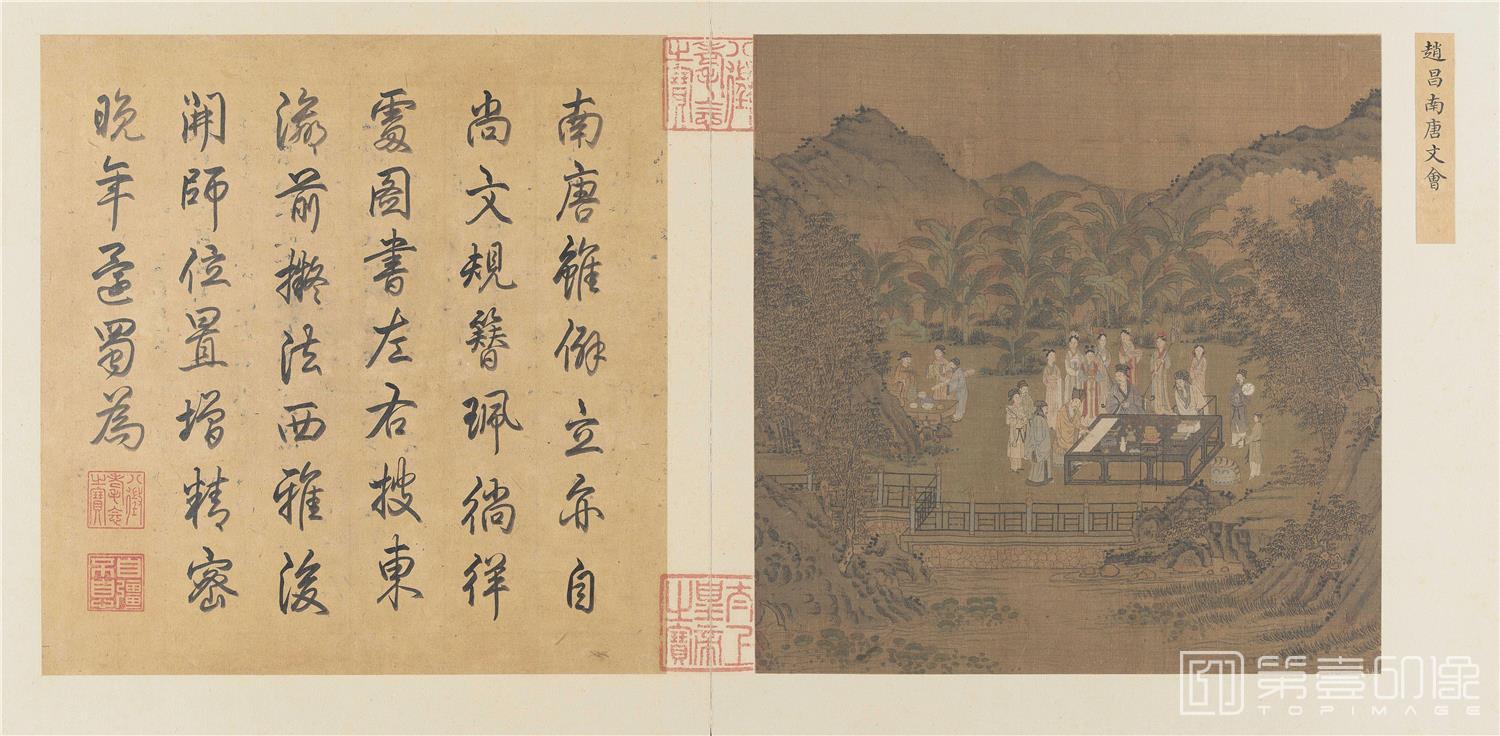 趙昌南唐文會
八徵耄念之寶
太上皇帝之寶
南唐雖僻立亦自
尚文規簪珮徜徉
處圖書左右披東
瀛前擬法西雅後
開師位置增精密
晚年還蜀為
八徵耄念之寶
自彊不息
第壹印像
TOPIMAGE